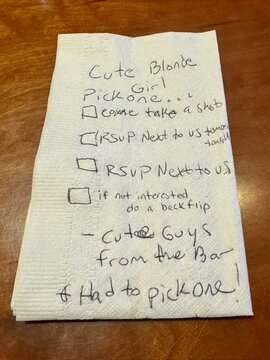 Cute Blonde
Girl
Pick one...
come take a shot
RSVP Next to us tomorrow
tonight
RSVP Next to us
if not interested
do a backflip
- Cute Guys
from the Bar
* Had to pick one!